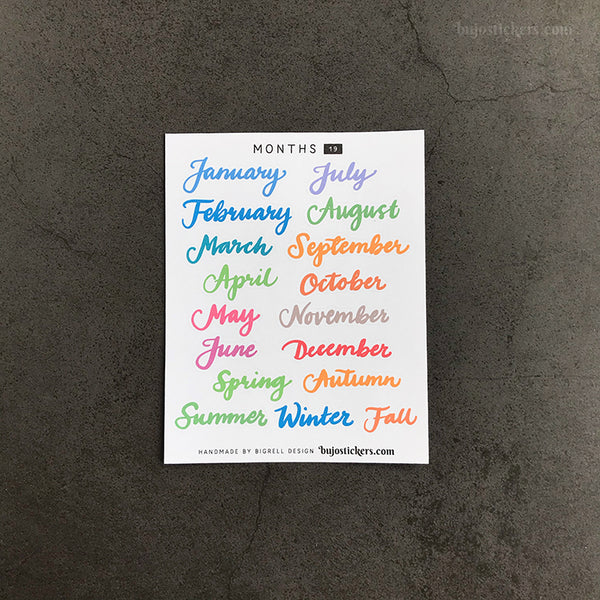 bujostickers.com
MONTHS 19
January July
February August
March September
April October
May November
June December
Spring Autumn
Summer Winter Fall
HANDMADE BY BIGRELL DESIGN bujostickers.com